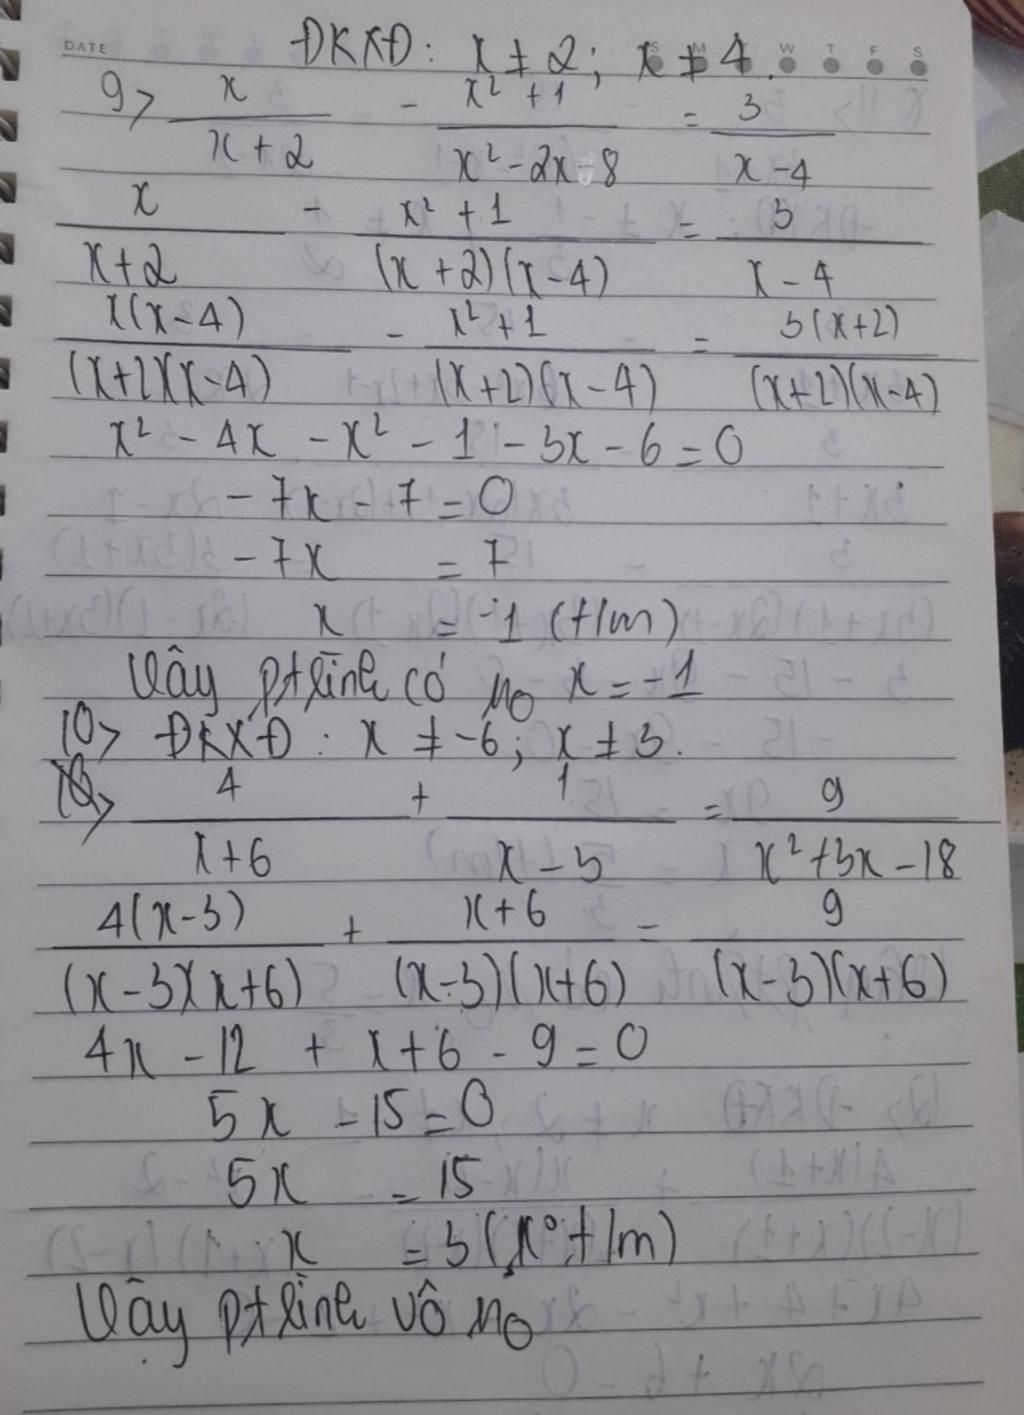 DATE
S M W T F S
ĐKXĐ: x ≠ 2; x ≠ 4.
9> x/(x + 2) - (x² + 1)/(x² - 2x - 8) = 3/(x - 4)
x/(x + 2) - (x² + 1)/((x + 2)(x - 4)) = 3/(x - 4)
x(x - 4)/((x+2)(x - 4)) - (x² + 1)/((x+2)(x - 4)) = 3(x+2)/((x+2)(x-4))
x² - 4x - x² - 1 - 3x - 6 = 0
- 7x - 7 = 0
- 7x = 7
x = -1 (t/m)
Vậy pt trình có no x = -1
10> ĐKXĐ: x ≠ -6; x ≠ 3.
4/(x + 6) + 1/(x - 3) = 9/(x² + 3x - 18)
4(x - 3)/((x - 3)(x + 6)) + (x + 6)/((x - 3)(x + 6)) = 9/((x - 3)(x + 6))
4x - 12 + x + 6 - 9 = 0
5x - 15 = 0
5x = 15
x = 3 (ko t/m)
Vậy pt trình vô no